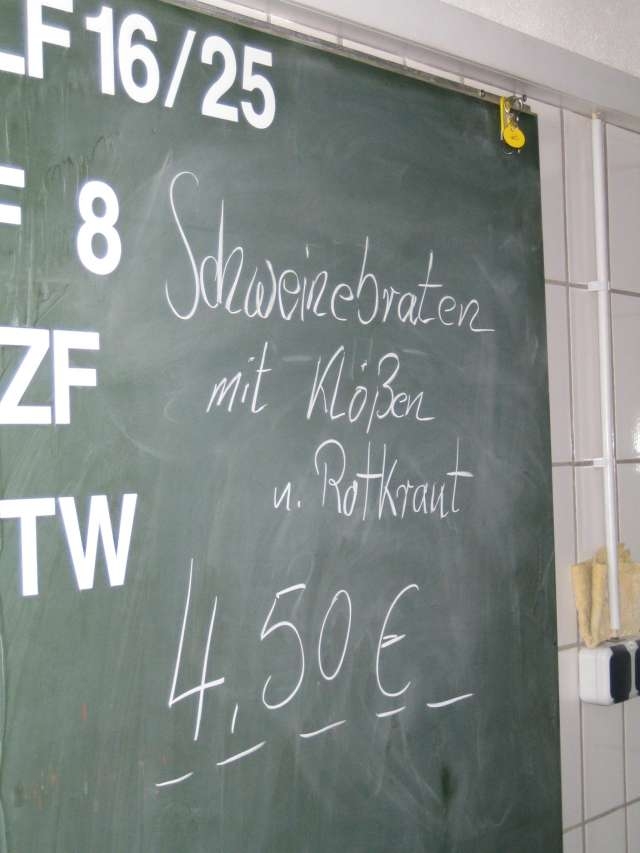 LF 16/25
F 8
ZF
TW
Schweinebraten
mit Klößen
u. Rotkraut
4,50 €